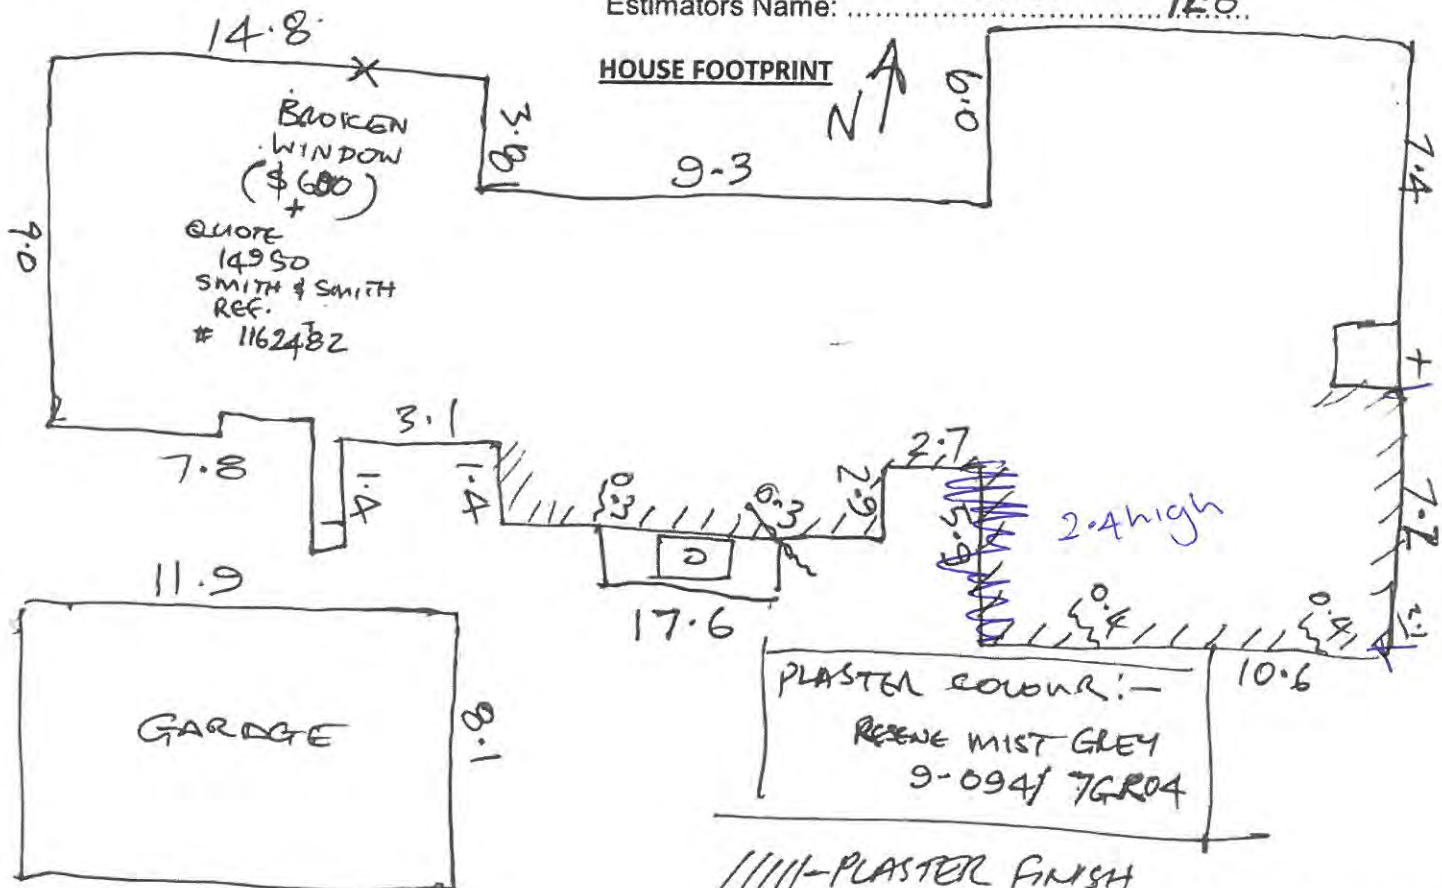 Estimators Name:
HOUSE FOOTPRINT
N
14.8
BROKEN
WINDOW
($680)
+
QUOTE
14950
SMITH & SMITH
REF.
# 1162482
9.0
9.3
6.0
7.4
7.8
3.1
1.4
1.4
0.3
0.3
2.9
2.7
5.9
2.4 high
7.7
D
17.6
0.4
0.4
10.6
11.9
GARAGE
8.1
PLASTER COLOUR:-
RESENE MIST GREY
9-094/ 7GR04
/////-PLASTER FINISH